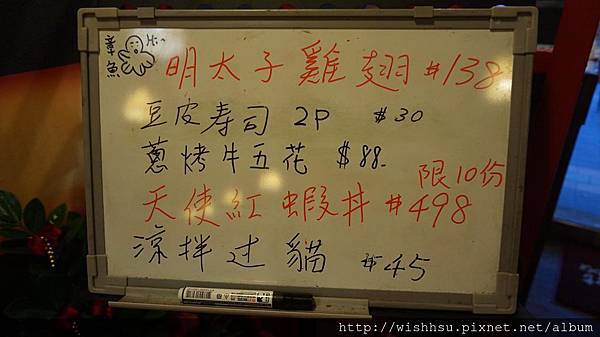 章魚
明太子雞翅 #138
豆皮寿司 2P $30
蔥烤牛五花 $88.
限10份
天使紅蝦丼 #498
涼拌过貓 #45
http://wishhsu.pixnet.net/album